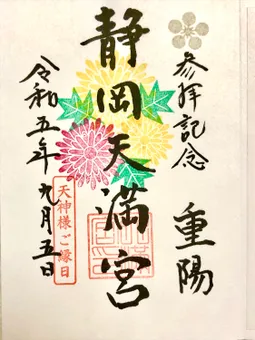 参拝記念
重陽
静岡天満宮
令和五年九月五日
天神様ご縁日